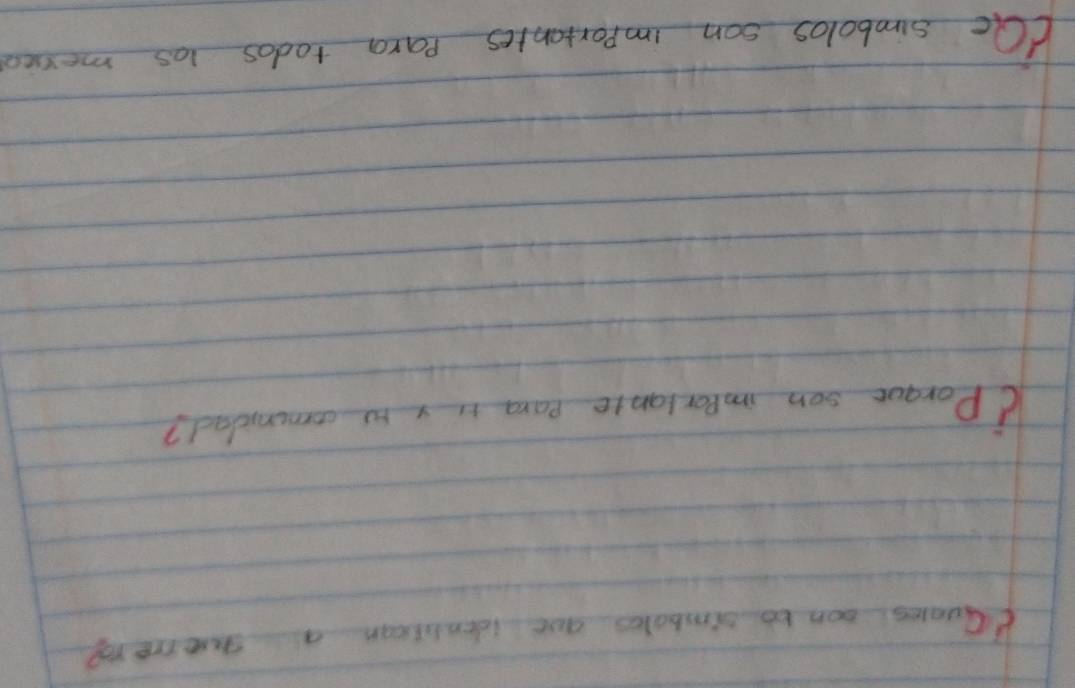 ¿Cuales son lo simbolos que identifican a guerrero?
¿Porque son importante Para ti y tu comunidad?
¿Qe simbolos son imPortantes Para todos los mexica